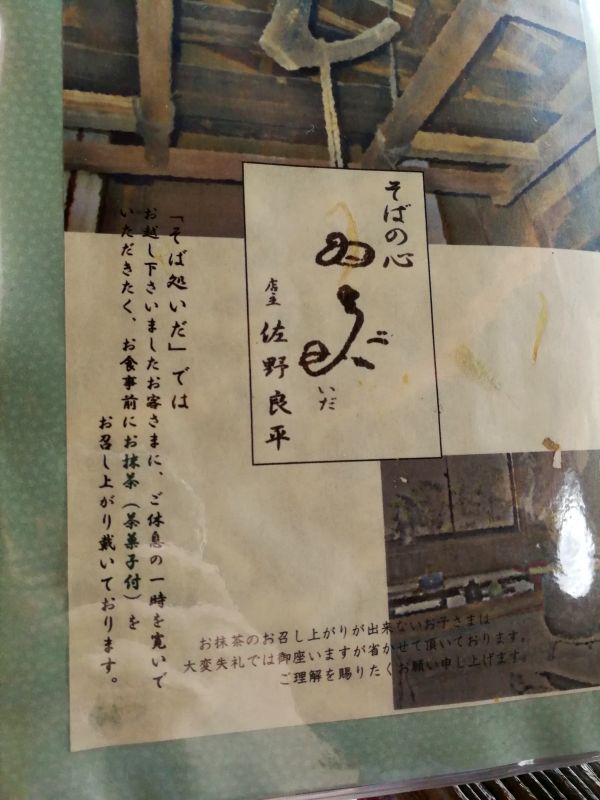 そばの心
いだ
店主 佐野良平
「そば処いだ」では
お越し下さいましたお客さまに、ご休息の一時を寛いで
いただきたく、お食事前にお抹茶（茶菓子付）を
お召し上がり戴いております。
お抹茶のお召し上がりが出来ないお子さまは
大変失礼では御座いますが省かせて頂いております。
ご理解を賜りたくお願い申し上げます。